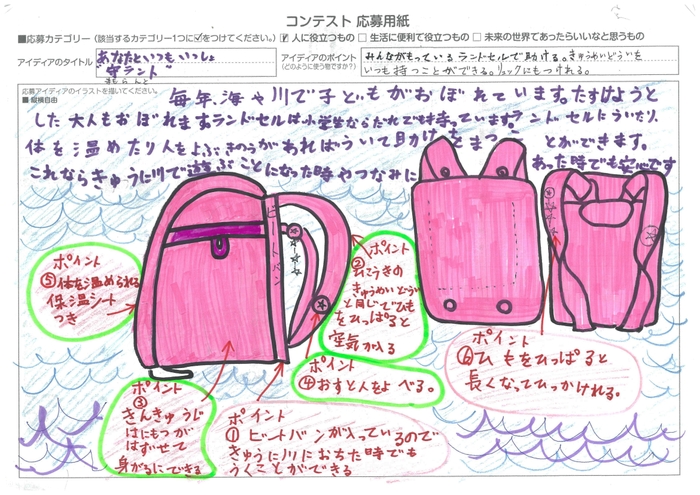 コンテスト 応募用紙
■応募カテゴリー(該当するカテゴリー1つに☑をつけてください。) ☑ 人に役立つもの □ 生活に便利で役立つもの □ 未来の世界であったらいいなと思うもの
アイディアのタイトル
あなたといつもいっしょ
"守ラント"
まもらんと
アイディアのポイント
(どのように使う物ですか?)
みんながもっているランドセルで助ける。きゅうめいどういを
いつも持つことができる。リュックにもつけれる。
応募アイディアのイラストを描いてください。
■縦横自由
毎年、海や川で子どもがおぼれています。たすけようと
した大人もおぼれます。ランドセルは小学生ならだれでも持っています。ランドセルがういたり、
体を温めたり人をよぶきのうがあればういて助けをまつことができます。
これならきゅうに川で遊ぶことになった時やつなみにあった時でも安心です
ビートバン
ポイント
⑤体を温められる
保温シート
つき
ポイント
②
ひこうきの
きゅうめいどうい
と同じでひも
をひっぱると
空気が入る
ポイント
④おすと人をよべる。
ポイント
③
きんきゅうじ
はにもつが
はずせて
身がるにできる
ポイント
①ビートバンが入っているので
きゅうに川におちた時でも
うくことができる
ポイント
⑥ひもをひっぱると
長くなってひっかけれる。